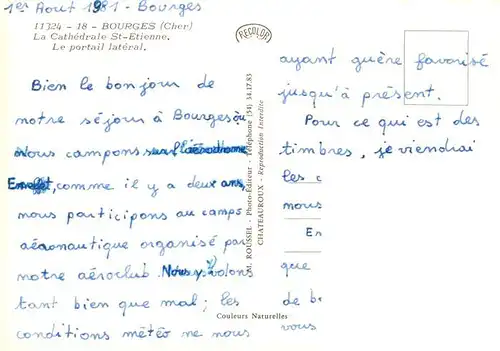 1er Aout 1981 - Bourges
11324 - 18 - BOURGES (Cher)
La Cathédrale St-Etienne.
Le portail latéral.
RECOLOR
Bien le bonjour de
notre séjour à Bourges où
Nous campons sur l'aérodrome
comme il y a deux ans,
nous participons au camps
aéronautique organisé par
notre aéroclub. Nous y volons
tant bien que mal ; les
conditions météo ne nous
M. ROUSSEL - Photo-Editeur - Téléphone (54) 4.17.83
CHATEAUROUX - Reproduction Interdite
Couleurs Naturelles
ayant guère favorisé
jusqu'à présent.
Pour ce qui est des
timbres, je viendrai
les
nous
En
que
de
vous